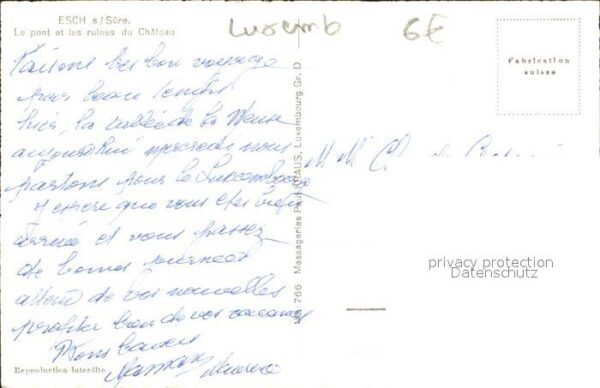 ESCH s/Sûre,
Le pont et les ruines du Château
Luxemb 6€
Fabrication
suisse
Faisons très bon voyage
par beau temps
hier, la vallée de la Meuse
aujourd'hui mercredi nous
partons pour le Luxembourg
J'espère que vous êtes bien
arrivé et vous passez
de bonnes journées
attend de vos nouvelles
profiter bien de vos vacances
Bons baisers
Maman
Messageries Paul KRAUS, Luxembourg Gr. D.
766
M M
privacy protection
Datenschutz
Reproduction Interdite